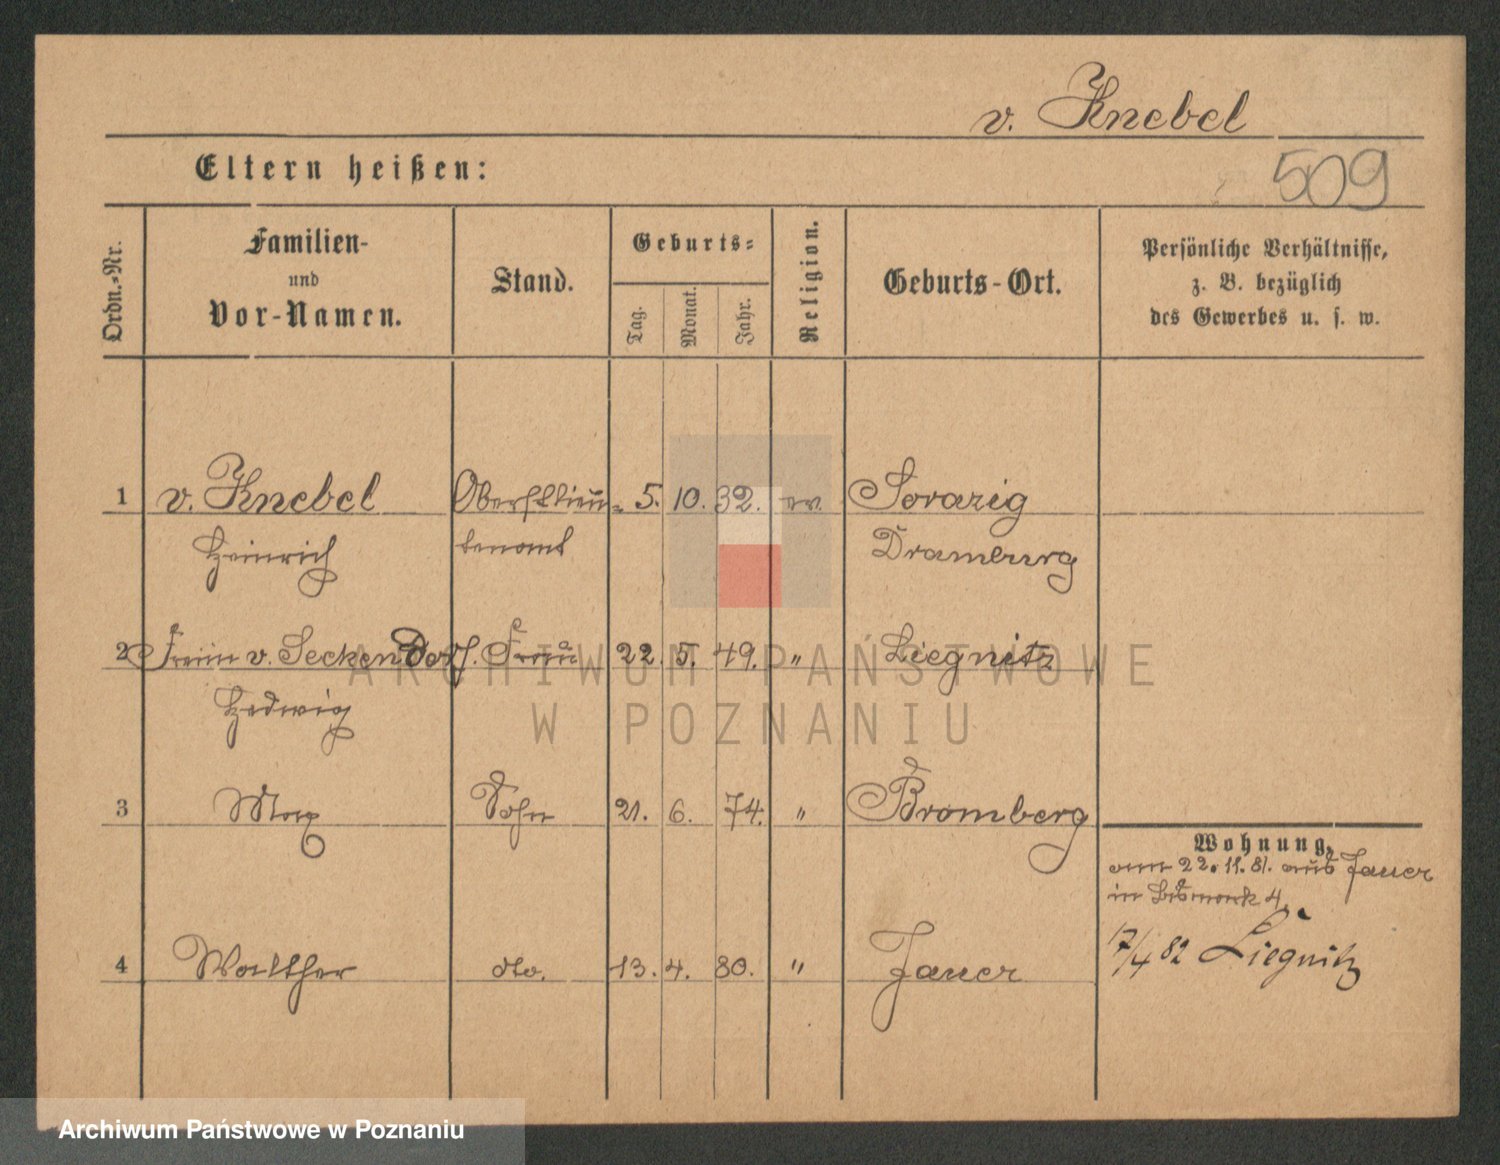 v. Knebel
509
Eltern heißen:
Ordn.-Nr.
Familien-
und
Vor-Namen.
Stand.
Geburts-
Tag.
Monat.
Jahr.
Religion.
Geburts-Ort.
Persönliche Verhältnisse,
z. B. bezüglich
des Gewerbes u. s. w.
1 v. Knebel Oberstlieu- 5. 10. 32. ev.
Heinrich tenant Dramburg
2 Freiin v. Seckendorf. Frau 22. 5. 49. " Liegnitz
Hedwig
3 Max Sohn 21. 6. 74. " Bromberg
4 Walther dto. 13. 4. 80. " Jauer
Wohnung.
am 22. 11. 81. aus Jauer
in Bismark 4.
17/4 82 Liegnitz
ARCHIWUM PAŃSTWOWE
W POZNANIU
Archiwum Państwowe w Poznaniu